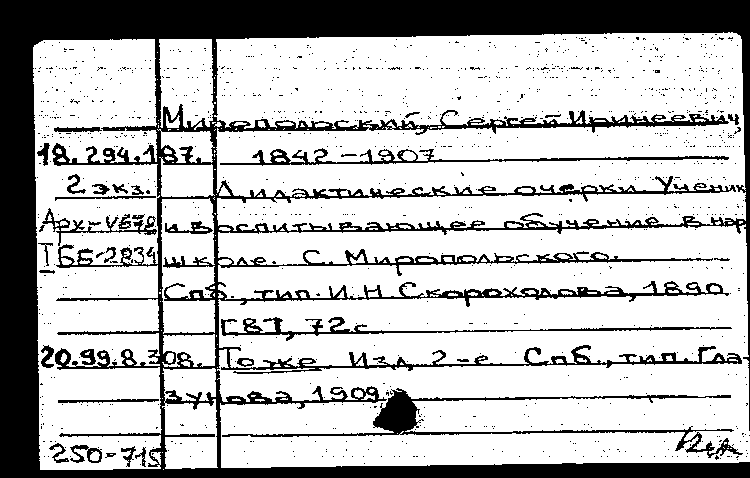 Миропольский, Сергей Иринеевич,
18.294.187. 1842-1907
2 экз. Дидактические очерки Ученик
Арх-V678 и воспитывающее обучение в нар
ТББ-2834 школе. С. Миропольского.
Спб., тип. И. Н Скороходова, 1890
72 с
20.99.8.308. То же. Изд 2-е Спб., тип. Гла-
зунова, 1909
250-715